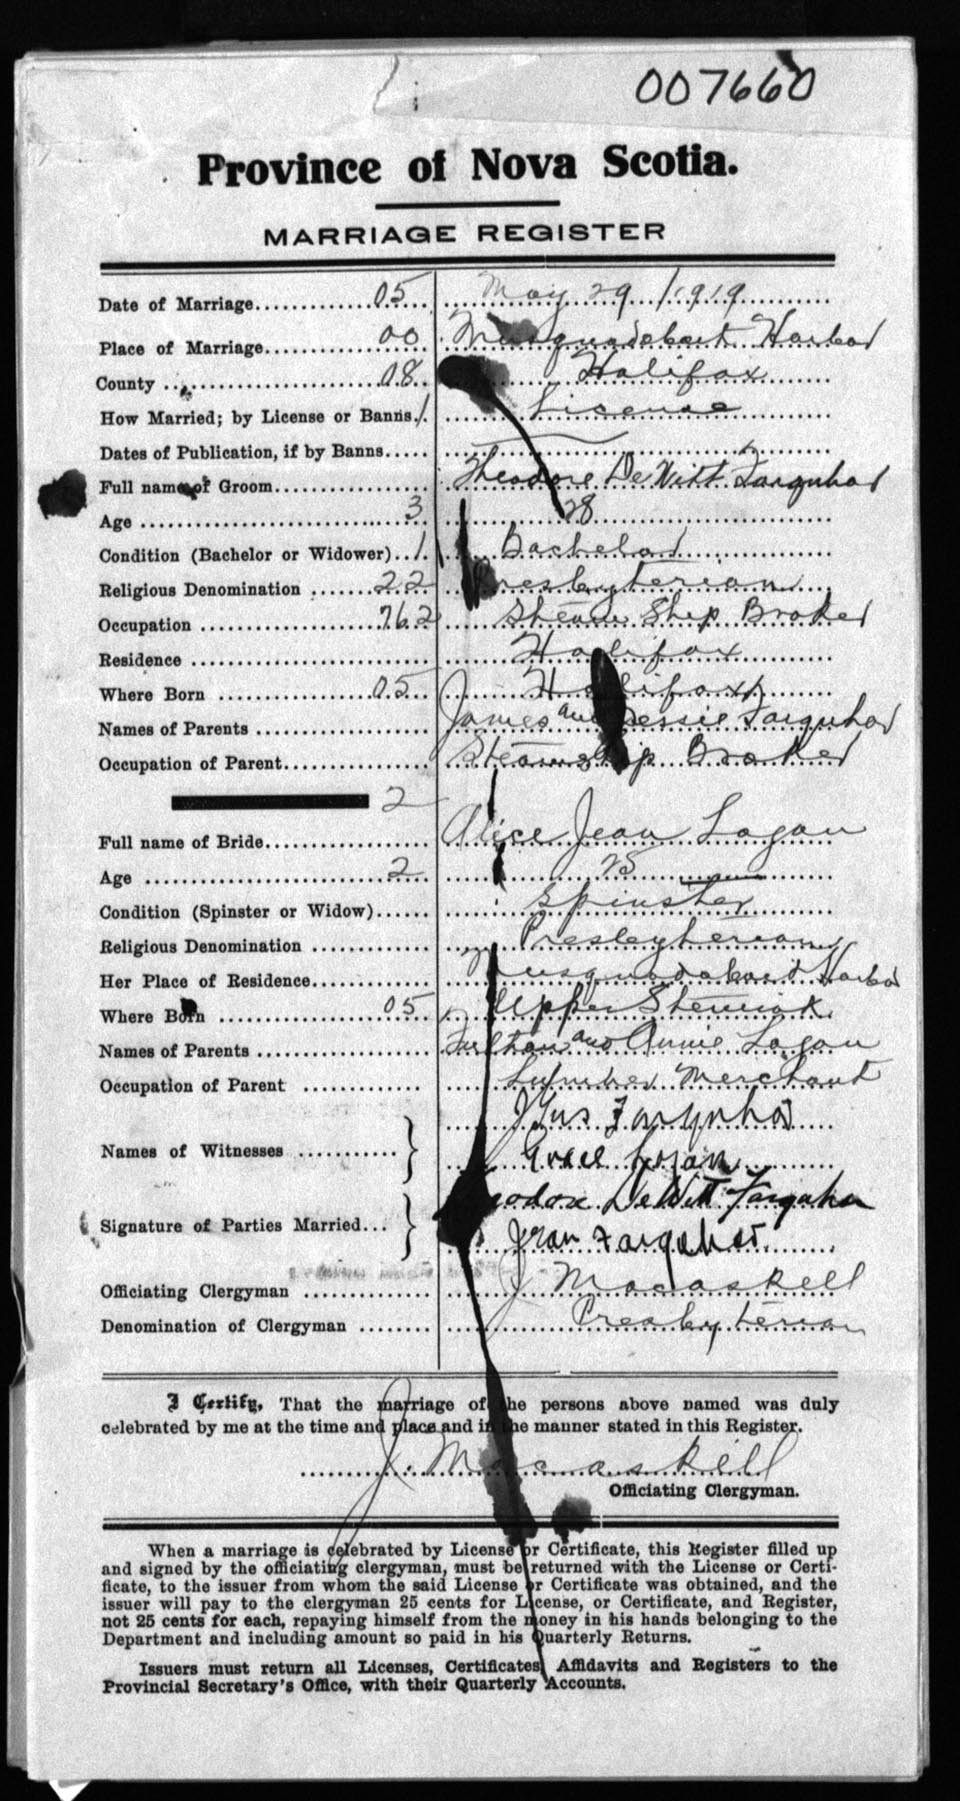 007660
Province of Nova Scotia.
MARRIAGE REGISTER
Date of Marriage 05 May 29 / 1919
Place of Marriage 00 Musquodoboit Harbor
County 08 Halifax
How Married; by License or Banns. 1. License
Dates of Publication, if by Banns
Full name of Groom Theodore DeWitt Farquhar
Age 3 28
Condition (Bachelor or Widower) 1 Bachelor
Religious Denomination 22 Presbyterian
Occupation 762 Steam Ship Broker
Residence Halifax
Where Born 05 Halifax
Names of Parents James and Bessie Farquhar
Occupation of Parent Steamship Broker
2
Full name of Bride Alice Jean Logan
Age 2 25
Condition (Spinster or Widow) Spinster
Religious Denomination Presbyterian
Her Place of Residence Musquodoboit Harbor
Where Born 05 Upper Stewiack
Names of Parents and Annie Logan
Occupation of Parent Lumber Merchant
Names of Witnesses Farquhar
Grace Logan
Signature of Parties Married DeWitt Farquhar
Jean Farquhar
Officiating Clergyman J Macaskill
Denomination of Clergyman Presbyterian
I Certify, That the marriage of the persons above named was duly
celebrated by me at the time and place and in the manner stated in this Register.
J. Macaskill
Officiating Clergyman.
When a marriage is celebrated by License or Certificate, this Register filled up
and signed by the officiating clergyman, must be returned with the License or Certi-
ficate, to the issuer from whom the said License or Certificate was obtained, and the
issuer will pay to the clergyman 25 cents for License, or Certificate, and Register,
not 25 cents for each, repaying himself from the money in his hands belonging to the
Department and including amount so paid in his Quarterly Returns.
Issuers must return all Licenses, Certificates, Affidavits and Registers to the
Provincial Secretary's Office, with their Quarterly Accounts.